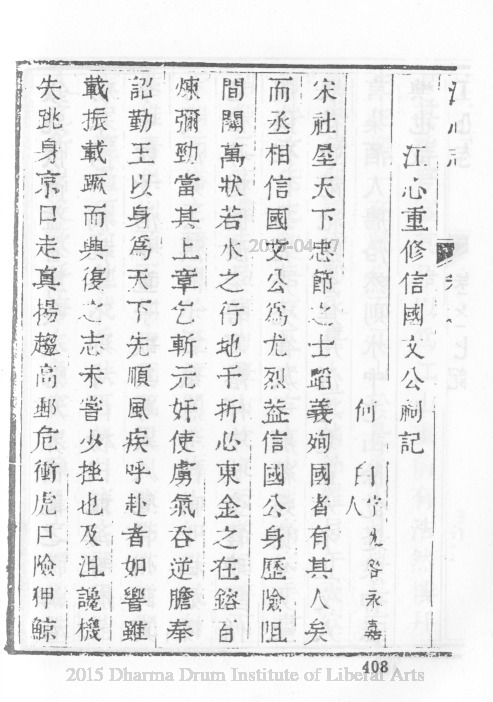 江心志
江心重修信國文公祠記
何白 字无咎永嘉人
宋社屋天下忠節之士蹈義殉國者有其人矣
而丞相信國文公為尤烈益信國公身歷險阻
間關萬狀若水之行地千折必東金之在鎔百
煉彌勁當其上章乞斬元奸使虜氣吞逆膽奉
詔勤王以身為天下先順風疾呼赴者如響雖
載振載蹶而興復之志未嘗少挫也及沮讒機
失跳身京口走真揚趨高郵危衝虎口險狎鯨
408
2015 Dharma Drum Institute of Liberal Arts